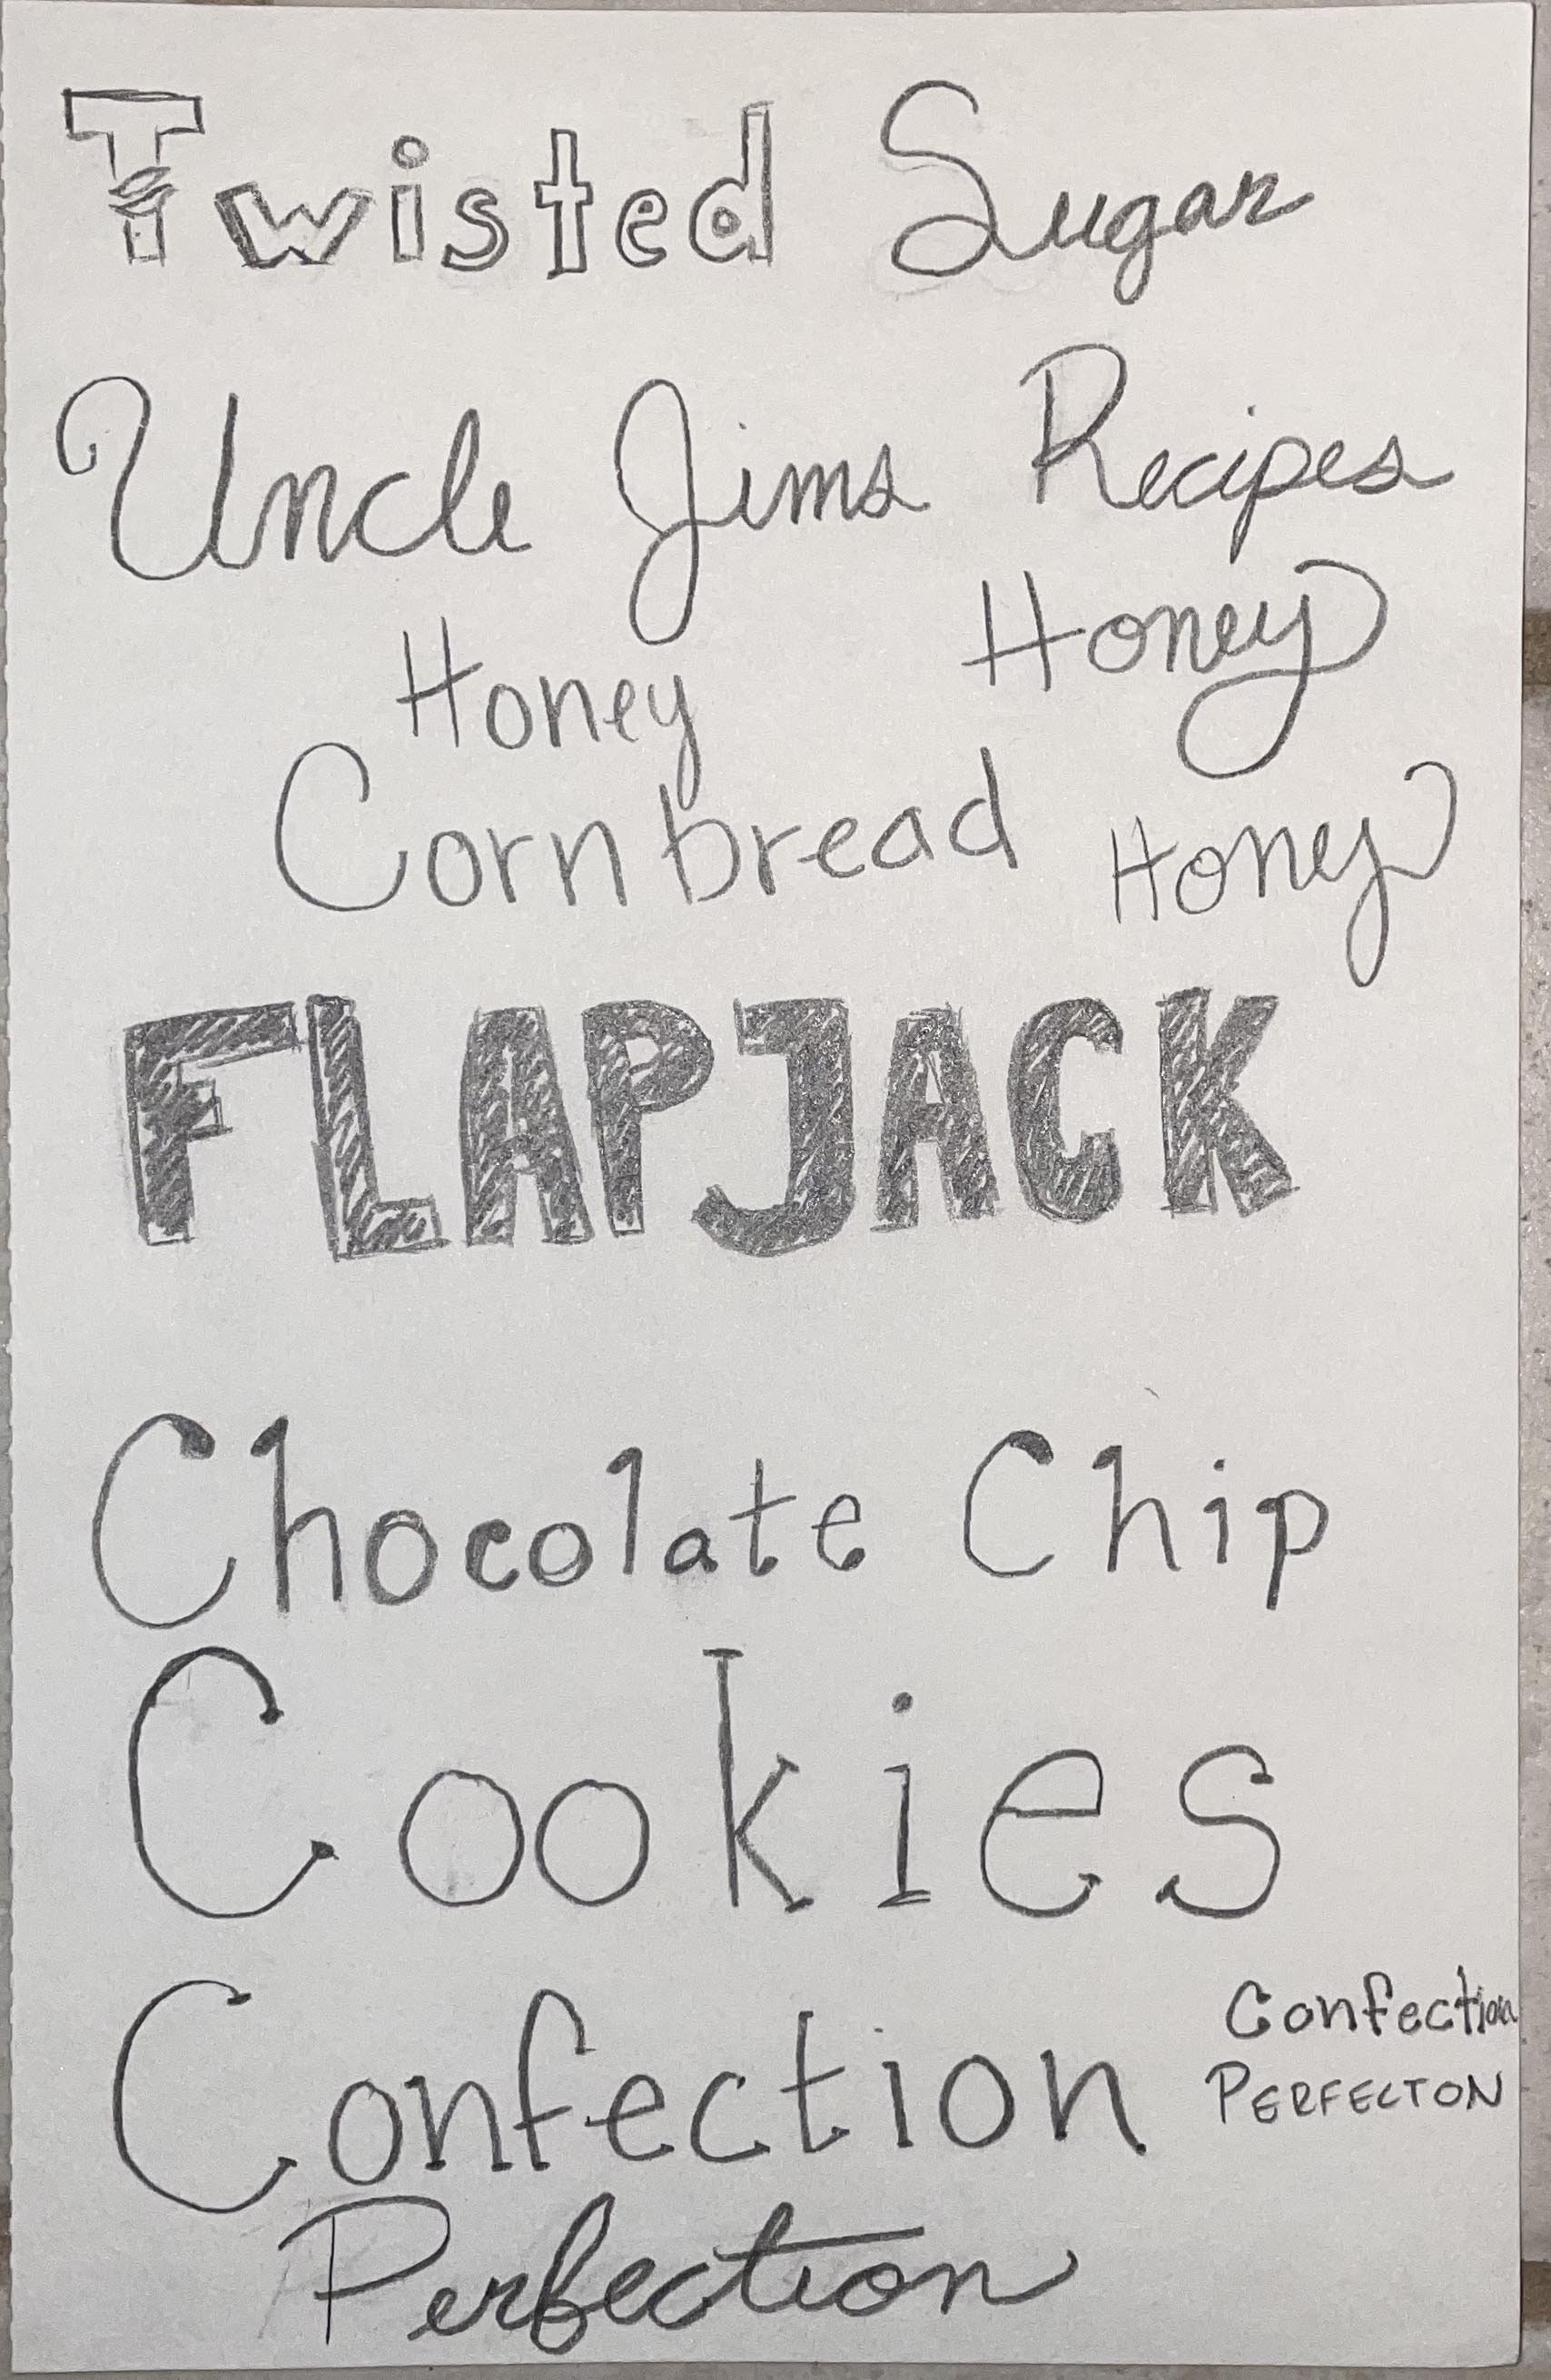 Twisted Sugar
Uncle Jims Recipes
Honey
Honey
Corn bread
Honey
FLAPJACK
Chocolate Chip
Cookies
Confection
Confection
PERFECTON
Perfection